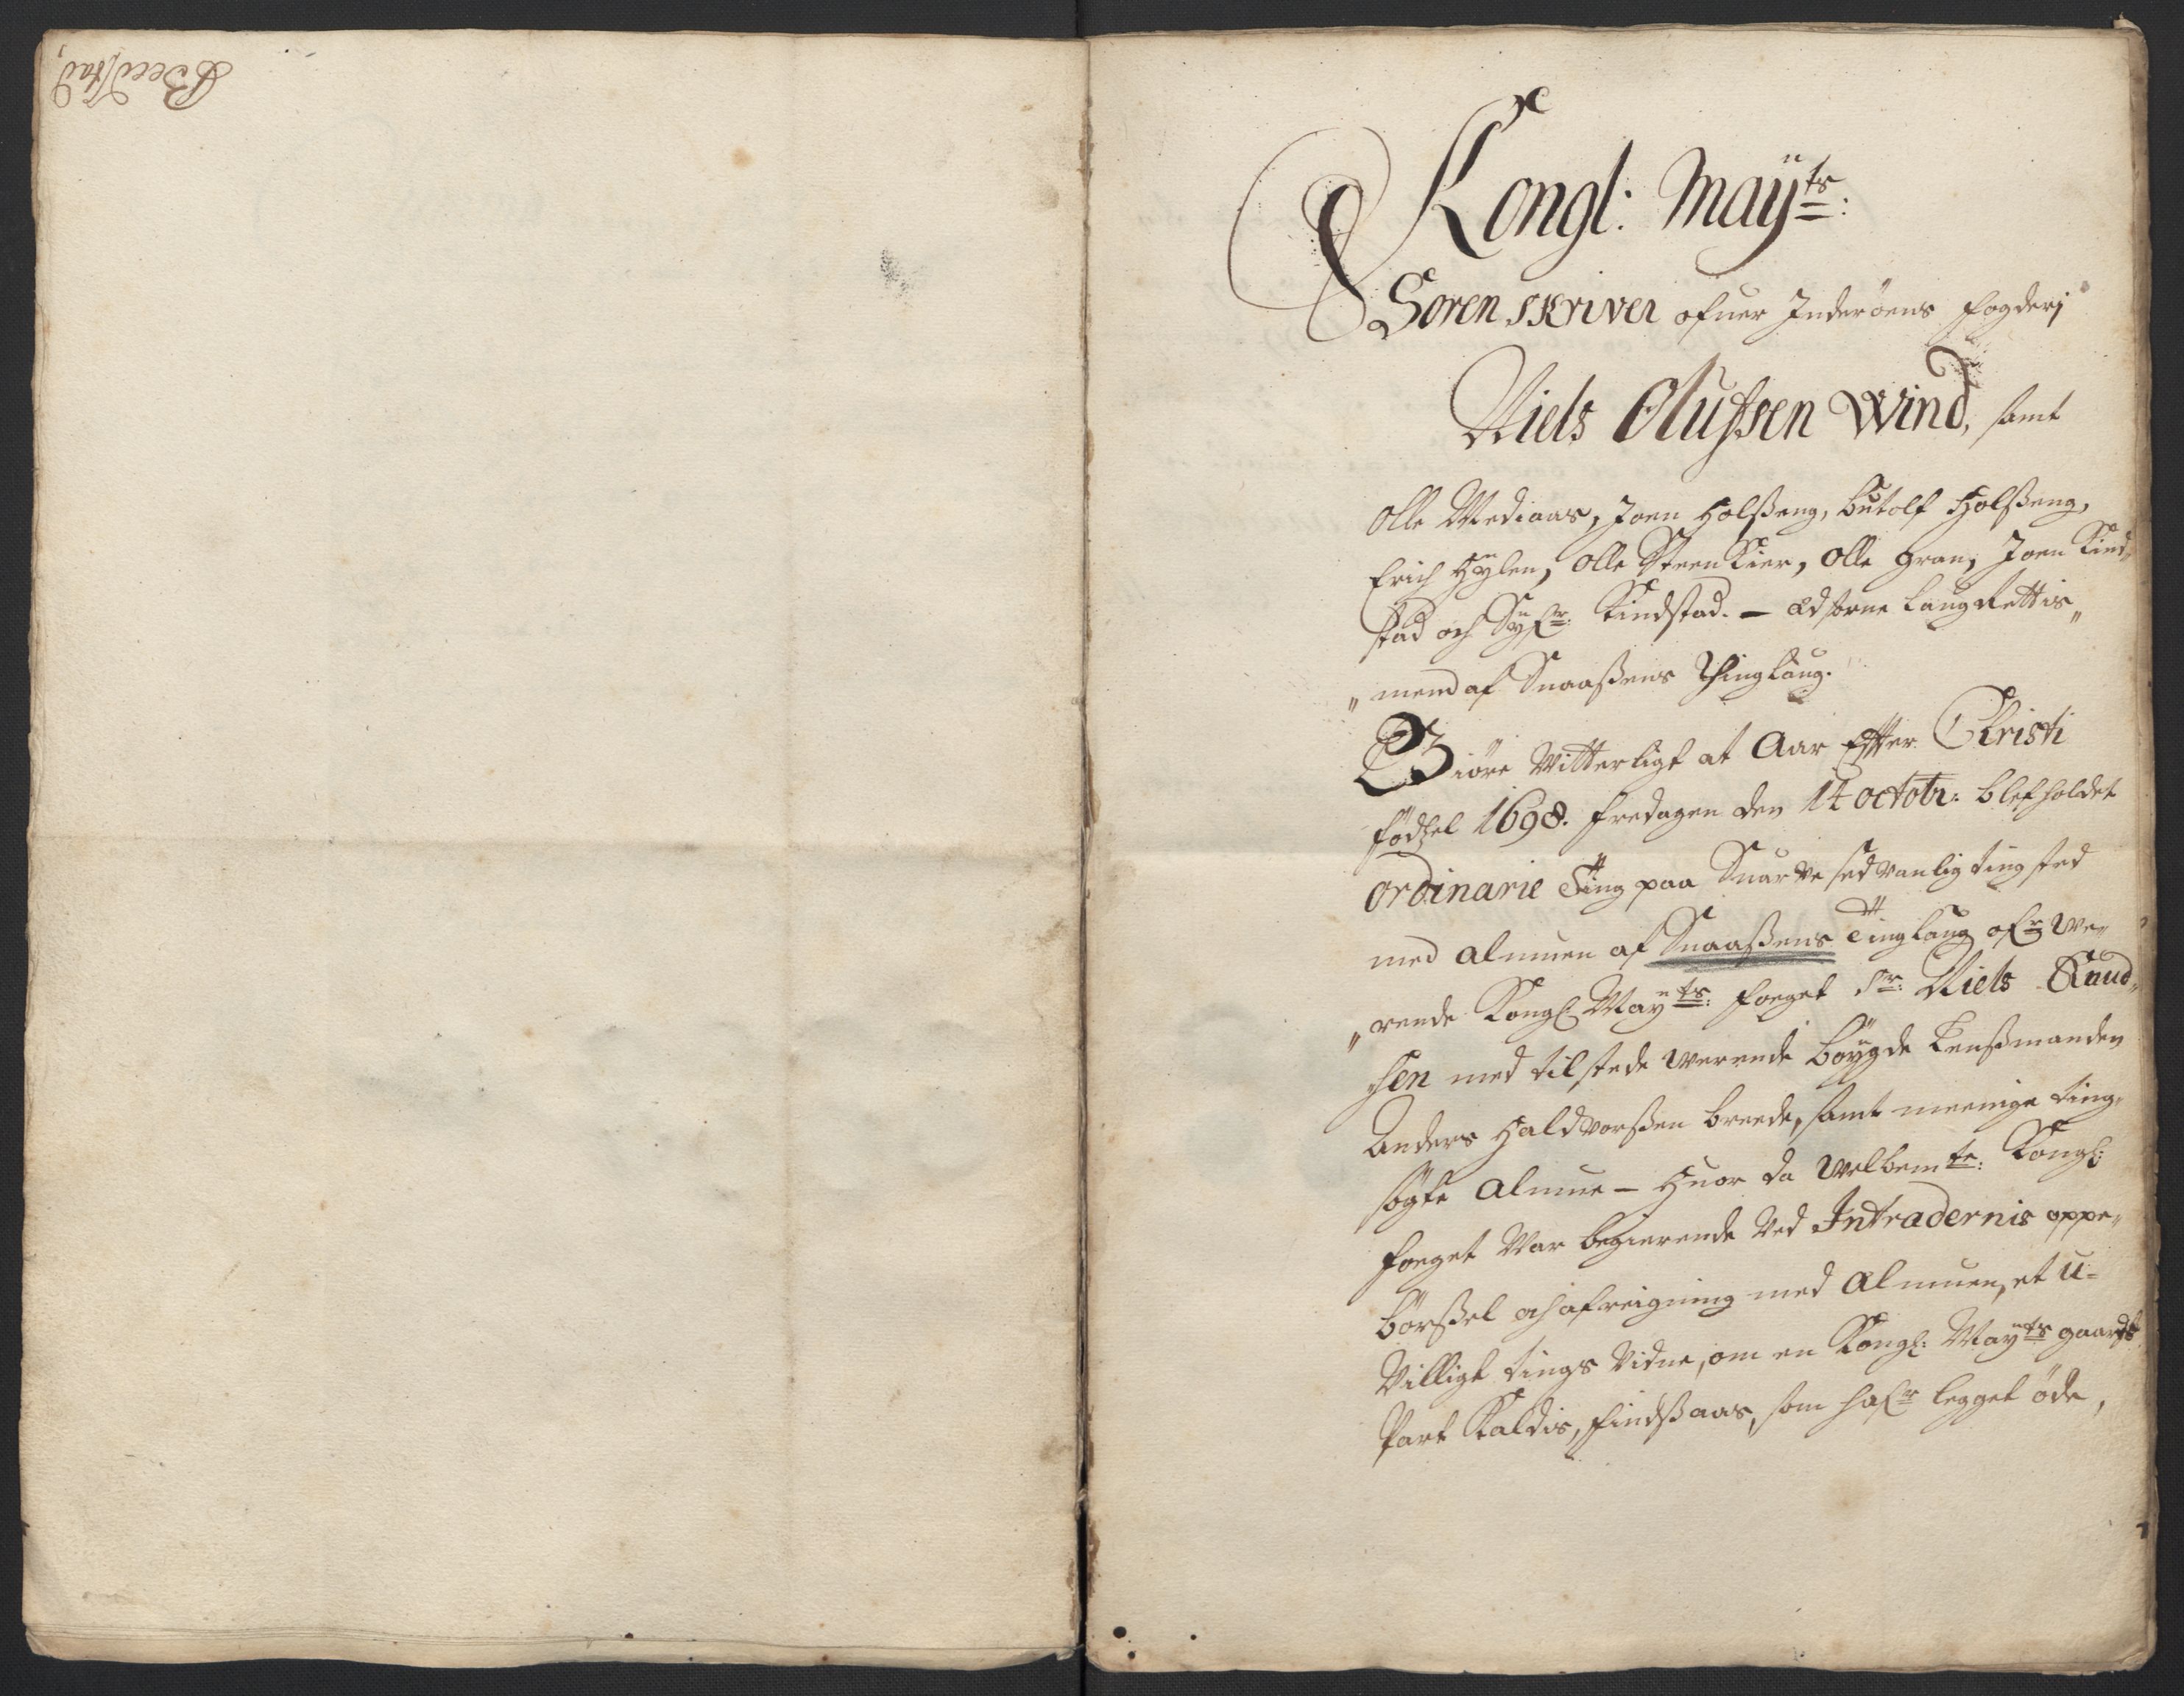 Beedstad,
Kongl: Maÿts:
Soren skriver ofuer Inderöens fogderj
Niels Olufsen Wind, samt
Olle Mediaas, Joen Holßeng, Butolf Holßeng,
Erich Hÿlen, Olle SteenKier, Olle Gran, Joen Kind„
stad och Kindstad. – Edsorne LaugRettis„
„mend af Snaaßens Thinglaug.
Giöre Witterligt at Aar Efter Christi
födtzel 1698. fredagen den 14 octobr: blef holdet
ordinarie Ting paa Snarve sedvanlig tingsted
med almuen af Snaaßens Tinglaug ofr We„
„rende Kongl Mayts: foeget Sr: Niels Knud„
sen med tilstede werende böÿgde Lenßmanden
Anders Haldvorßen breede, samt meenige ting„
sögte Almue – Huor da Welbemte: Kongl:
foeget War begierende Ved Intradernis oppe„
börßel och afreigning med Almuen, et u=
Villigt tings Vidne, om en Kongl: Mayts gaards
Part Kaldis, findßaas, som hafr legget öde,